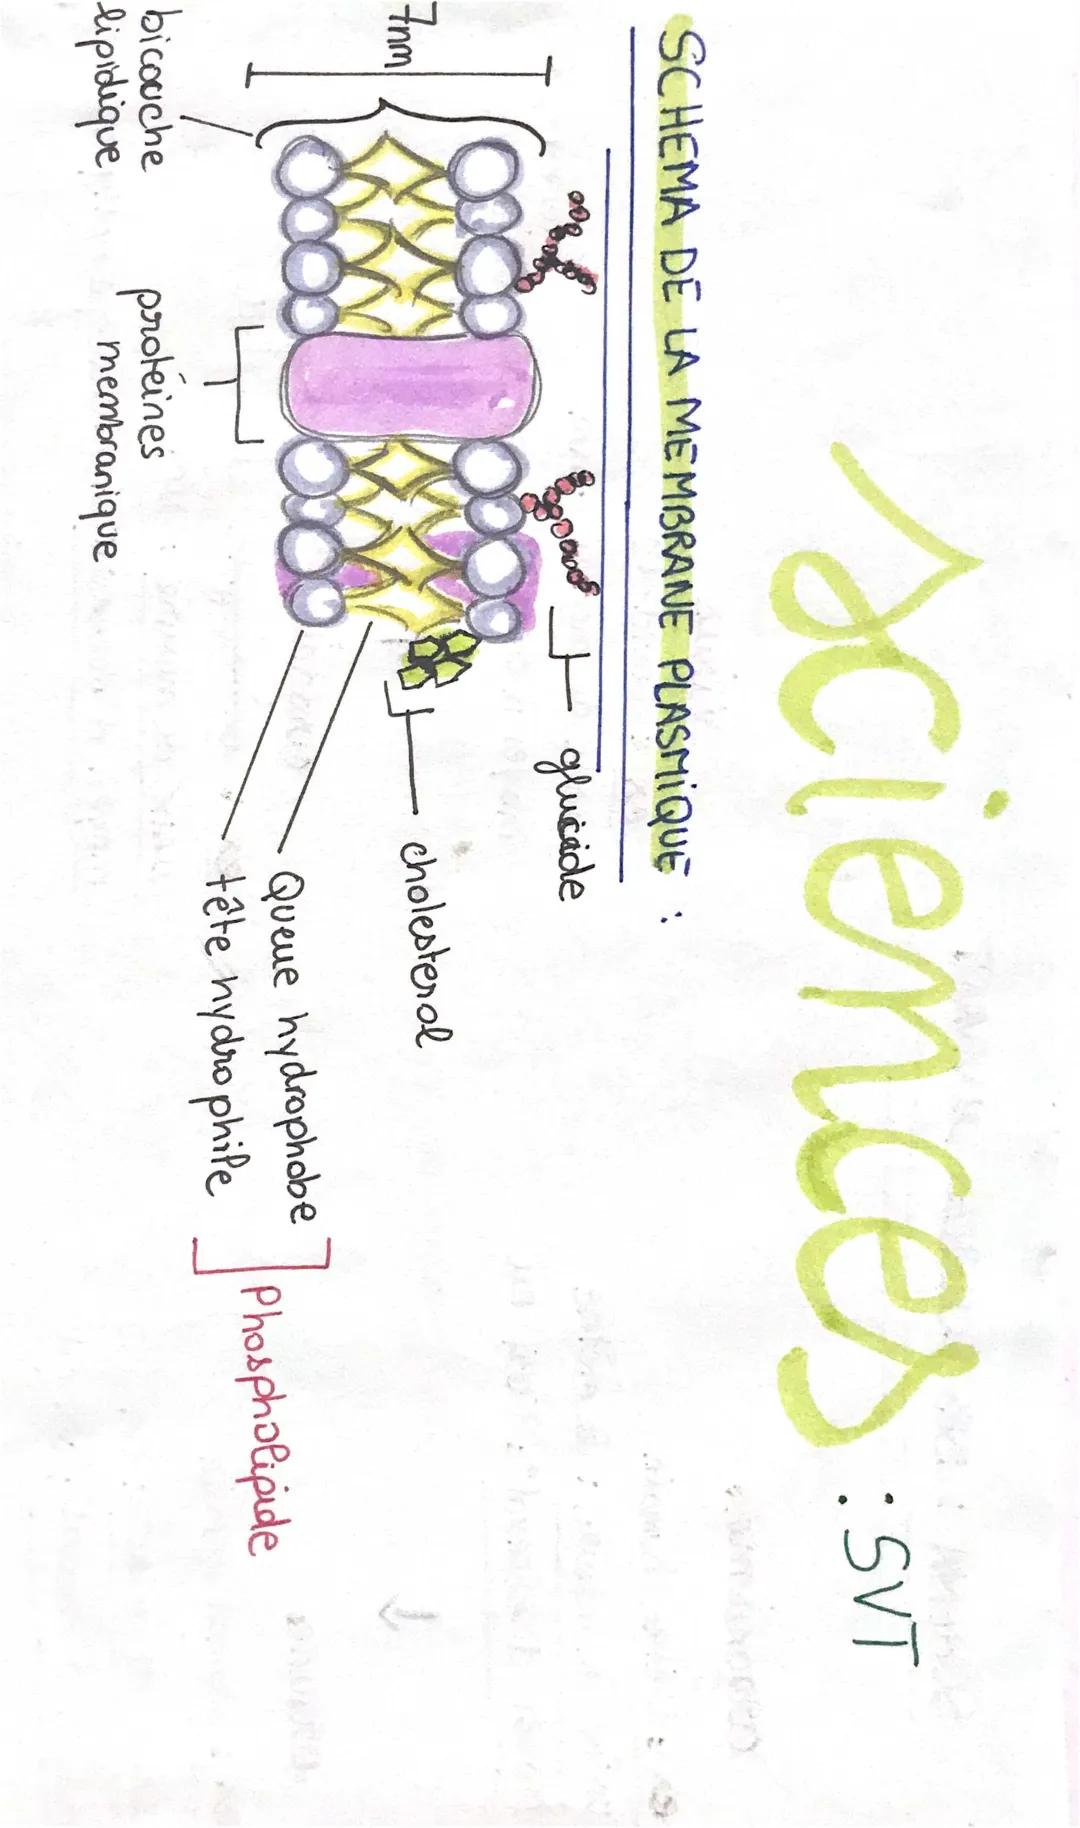 sciences : SVT
SCHEMA DE LA MEMBRANE PLASMIQUE :
glucide
7nm
cholesterol
Queue hydrophobe
tête hydrophile
Phospholipide
bicouche
lipidique
protéines
membranique